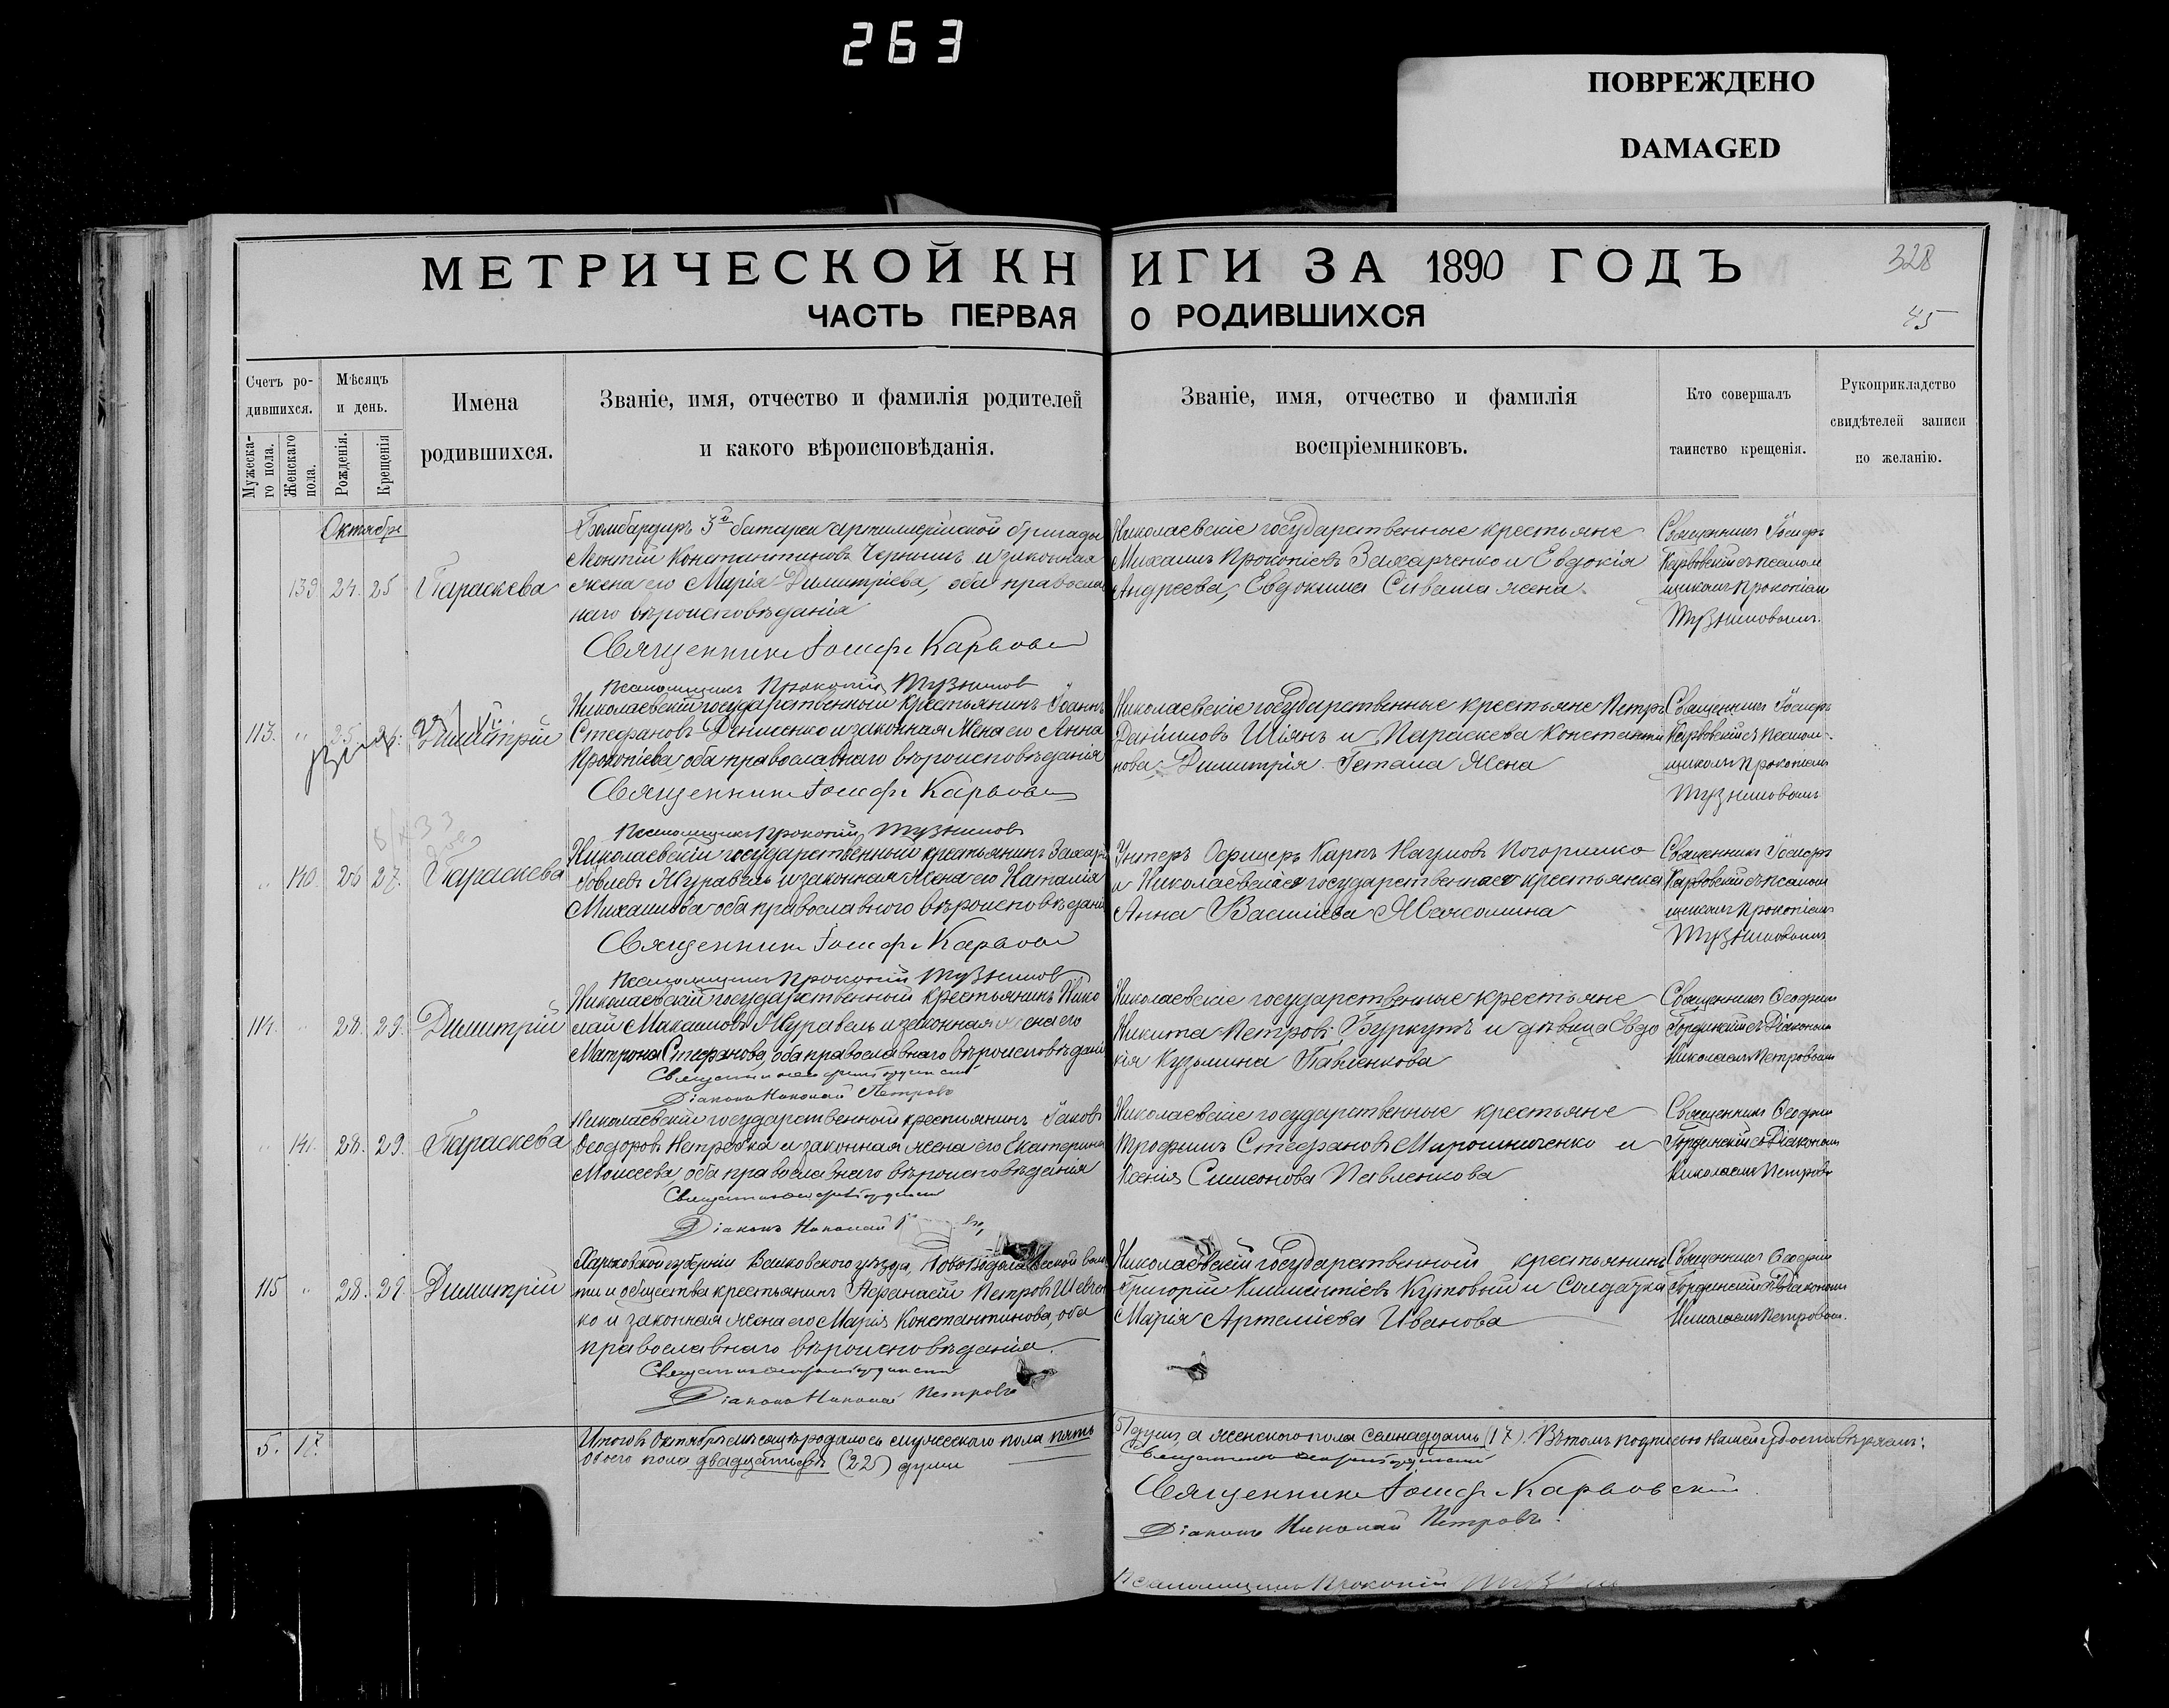 263
ПОВРЕЖДЕНО
DAMAGED
МЕТРИЧЕСКОЙ КНИГИ ЗА 1890 ГОДЪ
328
ЧАСТЬ ПЕРВАЯ О РОДИВШИХСЯ
45
Счетъ родившихся.
Мужескаго пола.
Женскаго пола.
Мѣсяцъ и день.
Рожденія.
Крещенія
Имена родившихся.
Званіе, имя, отчество и фамилія родителей
и какого вѣроисповѣданія.
Званіе, имя, отчество и фамилія
воспріемниковъ.
Кто совершалъ
таинство крещенія.
Рукоприкладство
свидѣтелей записи
по желанію.
Октябрь
139 24. 25 Параскева
Бомбардиръ 3й батареи артиллерійской бригады
Леонтій Константиновъ Чернышъ и законная
жена его Марія Димитріева, оба православ
наго вѣроисповѣданія
Священникъ Іосифъ
Псаломщикъ Прокопій
Николаевскіе государственные крестьяне
Михаилъ Прокопіевъ Захарченко и Евдокія
Андреева, Евдокима Сиваша жена.
Священникъ Іосифъ
съ псалом
щикомъ Прокопіемъ
113. " 25. 26. Димитрій
Николаевскій государственный крестьянинъ Іоаннъ
Стефановъ Денисенко и законная жена его Анна
Прокопіева, оба православнаго вѣроисповѣданія
Священникъ Іосифъ
Псаломщикъ Прокопій
Николаевскіе государственные крестьяне Петръ
Даніиловъ Шіянъ и Параскева Константи
нова, Димитрія Гетала жена
Священникъ Іосифъ
съ псалом-
щикомъ Прокопіемъ
" 140. 26 27. Параскева
Николаевскій государственный крестьянинъ Захарій
Іовлевъ Журавель и законная жена его Наталія
Михаилова оба православнаго вѣроисповѣданія
Священникъ Іосифъ
Псаломщикъ Прокопій
Унтеръ Офицеръ Карпъ Наумовъ
и Николаевская государственная крестьянка
Анна Василіева
Священникъ Іосифъ
съ псалом
щикомъ Прокопіемъ
114. " 28. 29. Димитрій
Николаевскій государственный крестьянинъ Нико
лай Максимовъ Журавель и законная жена его
Матрона Стефанова, оба православнаго вѣроисповѣданія
Діаконъ Николай Петровъ
Николаевскіе государственные крестьяне
Никита Петровъ Буркутъ и дѣвица Евдо
кія Кузьмина Павленкова
Священникъ Ѳеофилъ
съ Діакономъ
Николаемъ Петровымъ
" 141. 28. 29. Параскева
Николаевскій государственный крестьянинъ Іаковъ
Ѳеодоровъ Нетребка и законная жена его Екатерина
Моисеева, оба православнаго вѣроисповѣданія
Діаконъ Николай
Николаевскіе государственные крестьяне
Трофимъ Стефановъ Мирошниченко и
Ксенія Симеонова Павленкова
Священникъ Ѳеофилъ
съ Діакономъ
Николаемъ Петров
115 " 28. 29. Димитрій
Харьковской губерніи Валковского уѣзда, волос
ти и общества крестьянинъ Аѳанасій Петровъ Шевчен
ко и законная жена его Марія Константинова, оба
православнаго вѣроисповѣданія.
Діаконъ Николай Петровъ
Николаевскій государственный крестьянинъ
Григорій Климентіевъ и солдатка
Марія Артеміева Иванова
Священникъ Ѳеофилъ
Николаемъ Петровым.
5. 17.
Итого въ Октябрѣ мѣсяцѣ родилось мужескаго пола пять
(5) душъ а женскаго пола семнадцать (17). Въ томъ подписью нашей удостовѣряемъ:
Обоего пола двадцать двѣ (22) души
Священникъ Іосифъ
Діаконъ Николай Петровъ.
Псаломщикъ Прокопій